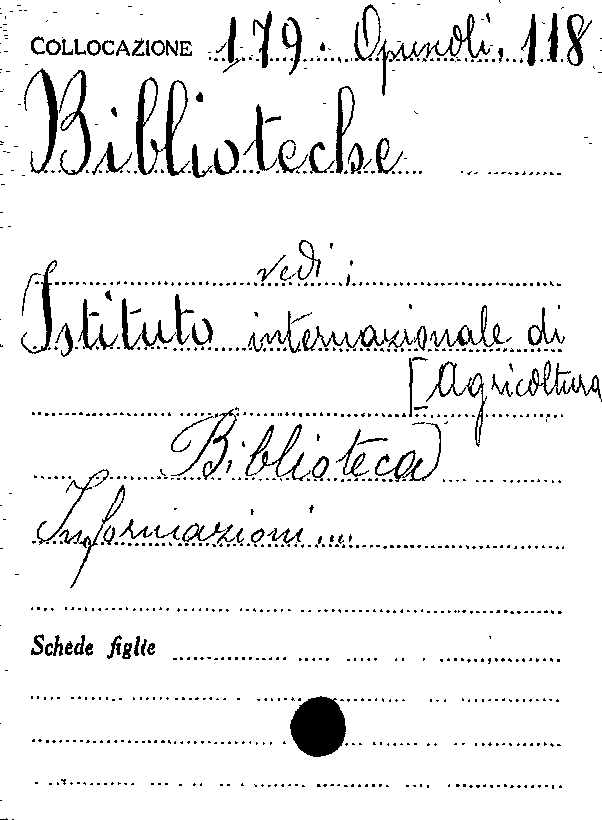 COLLOCAZIONE 179. Opuscoli. 118
Biblioteche
vedi:
Istituto internazionale di
[Agricoltura
(Biblioteca)
Informazioni....
Schede figlie